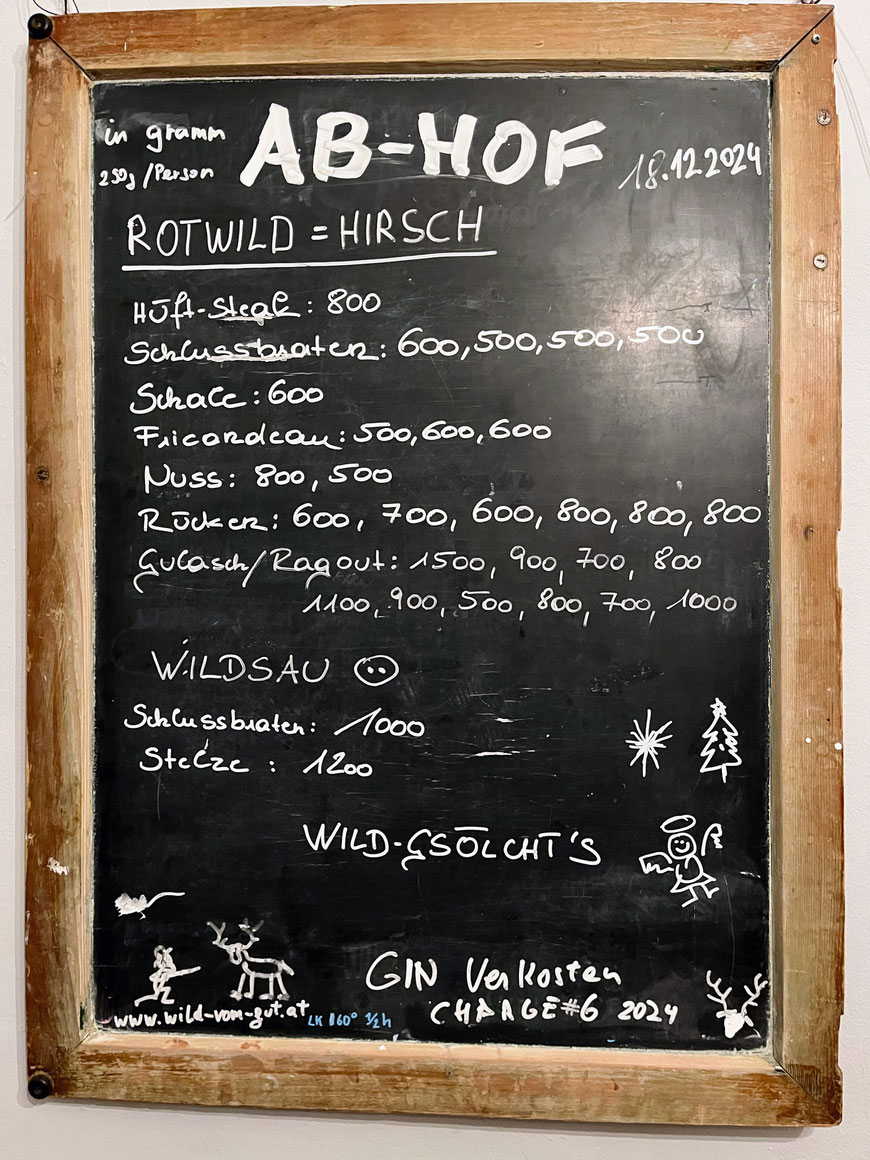 in gramm
250g/Person
AB-HOF
18.12.2024
ROTWILD = HIRSCH
Hüft-Steak: 800
Schlussbraten: 600, 500, 500, 500
Schale: 600
Fricandeau: 500, 600, 600
Nuss: 800, 500
Rücken: 600, 700, 600, 800, 800, 800
Gulasch/Ragout: 1500, 900, 700, 800
1100, 900, 500, 800, 700, 1000
WILDSAU
Schlussbraten: 1000
Stelze: 1200
WILD-GSÖLCHT'S
GIN Verkosten
CHARGE#6 2024
www.wild-vom-gut.at
LK 160° 1/2h